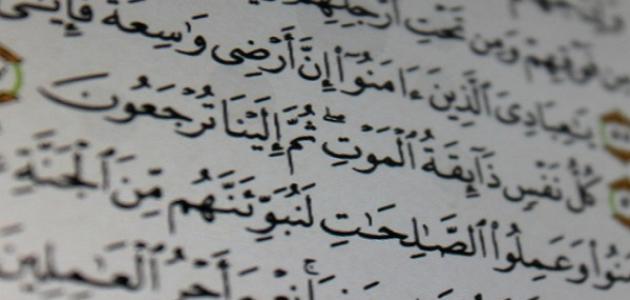 مِن فَوْقِهِمْ وَمِن تَحْتِ أَرْجُلِهِمْ
يَٰعِبَادِىَ ٱلَّذِينَ ءَامَنُوٓا۟ إِنَّ أَرْضِى وَٰسِعَةٌ
كُلُّ نَفْسٍ ذَآئِقَةُ ٱلْمَوْتِ ۖ ثُمَّ إِلَيْنَا تُرْجَعُونَ
وَعَمِلُوا۟ ٱلصَّٰلِحَٰتِ لَنُبَوِّئَنَّهُم مِّنَ ٱلْجَنَّةِ
نِعْمَ أَجْرُ ٱلْعَٰمِلِينَ